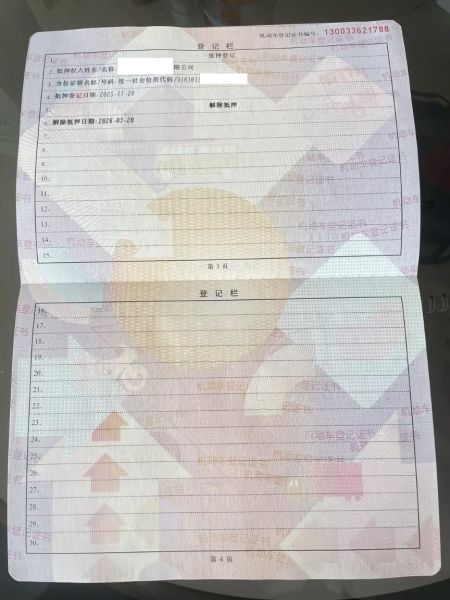 机动车登记证书编号: 130033621788
登记栏
1. 抵押登记
2. 抵押权人姓名/名称: 有限公司
3. 身份证明名称/号码:统一社会信用代码/916101
4. 抵押登记日期:2025-11-20
5. 解除抵押
6. 解除抵押日期:2026-03-20
7.
8.
9.
10.
11.
12.
13.
14.
15.
第 3 页
登记栏
16.
17.
18.
19.
20.
21.
22.
23.
24.
25.
26.
27.
28.
29.
30.
第 4 页